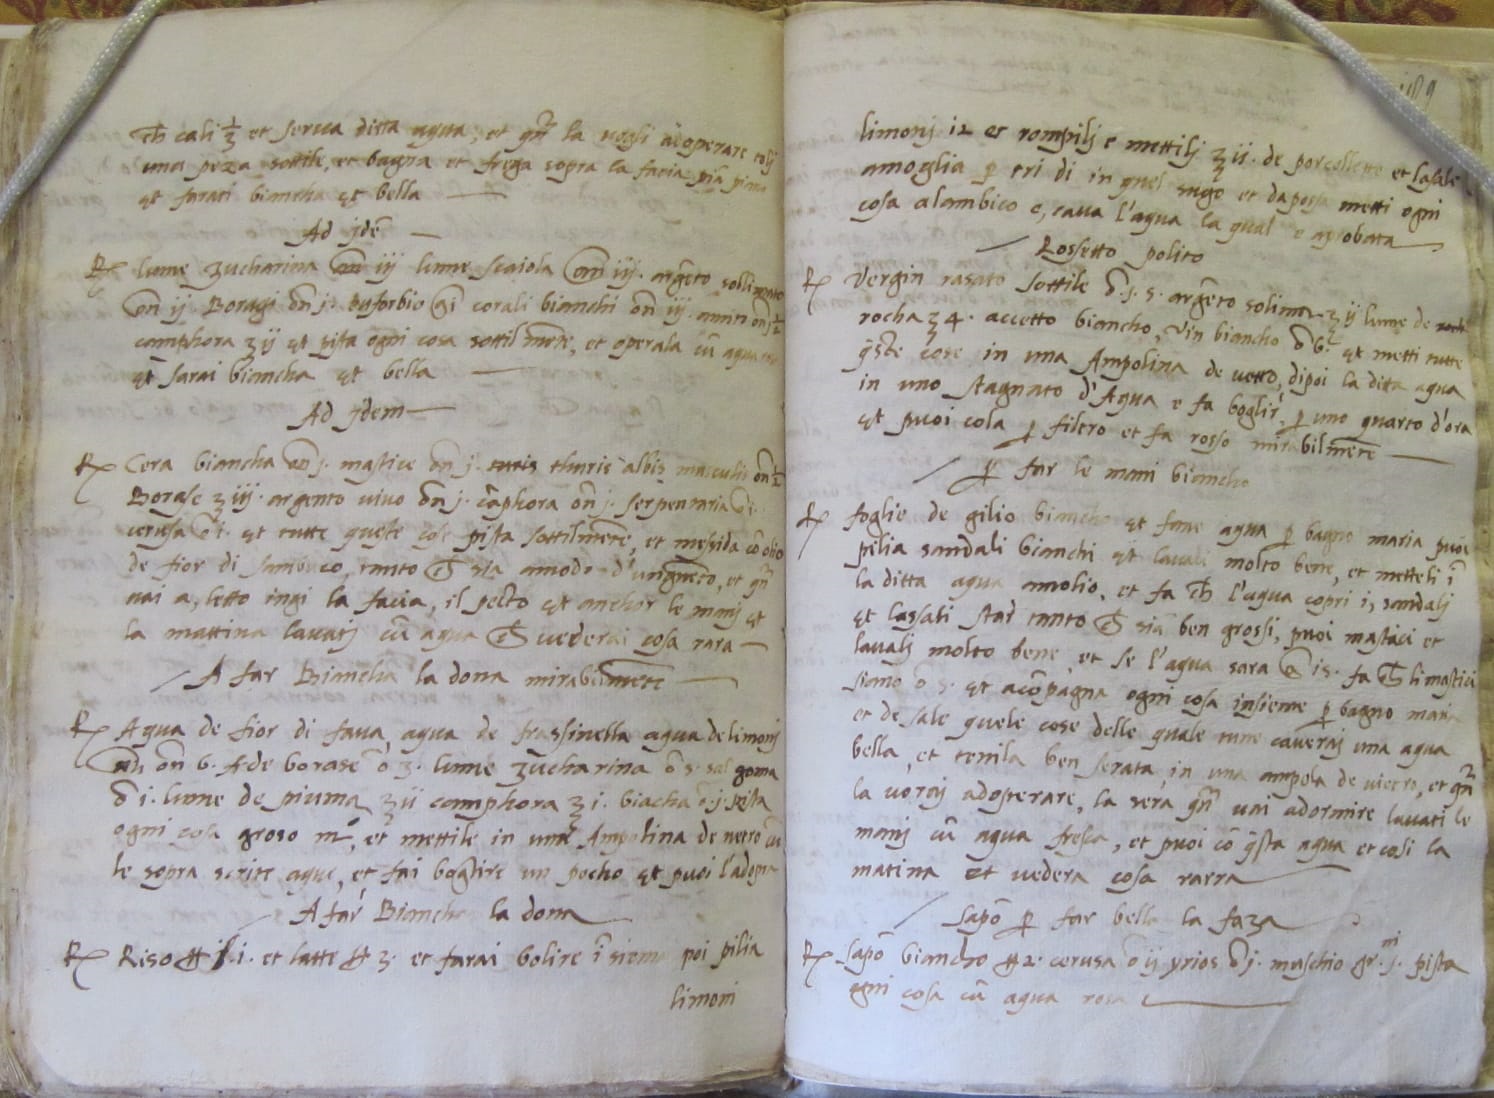 cali ⅓ et serva ditta aqua, et qñ la vogli adoperare tolj
una peza sottile, et bagna et frega sopra la facia pia piano
et farati biancha et bella
Ad jdē
℞ lume zucharina on̄ iij lume scaiola on̄ iij. argēto sollimato
on̄ ij. Boragi on̄ j. euforbio corali bianchi on̄ iij. on̄ j ½
camphora ʒ ij et pista ogni cosa sottilmēte, et operala cū aqua
et sarai biancha et bella
Ad jdem
℞ Cera biancha on̄ j. mastice on̄ j. thuris albis masculis on̄ ½
Borase ʒ iij. argento vivo on̄ j. cāphora on̄ j. serpentaria
cerusa et tutte queste cose pista sottilmēte, et messida cō olio
de fior di sambuco, tanto sia amodo d'ungueto, et qñ
vai a, letto ingi la facia, il pecto et anchor le manj et
la mattina lavatj cū aqua vederai cosa rara
A far Biancha la dona mirabilmēte
℞ Aqua de fior di fava, aqua de frassinella aqua de limonj
on̄ 6. de borase ō 3. lume zucharina ō s. sal gema
ō i. lume de piuma ʒ ii camphora ʒ i. biacha ō. j. pista
ogni cosa groso mº, et mettile in una Ampolina de vetro cū
le sopra scritte aque, et fai bogire un pocho et puoi l'adopra
A far Biancha la dona
℞ Riso ℔ i. et latte ℔ 3. et farai bolire īsieme poi pilia
limoni
189
limonj 12 et rompilj e mettilj ʒ ii. de porcellette et lasale
amoglia p̱ tri di in quel sugo et daposa metti ogni
cosa alambico e, cava l'aqua la qual e aprobata
Rossetto polito
℞ Vergin rasato sottile ō. j. s. argēto solima ʒ ij lume de
rocha ʒ 4. accetto biancho, Vin biancho ō 6. et metti tutte
q̄ste cose in una Ampolina de vetro, dipoi la ditta aqua
in uno stagnato d'Aqua e fa boglir, p̱ uno quarto d'ora
et puoi cola p̱ filtro et fa rosso mirabilmēte
p̱ far le mani biancho
℞ foglie de gilio biancho et fane aqua p̱ bagno maria puoi
pilia sandali bianchi et lavali molto bene, et metteli ī
la ditta aqua amolio, et fa l'aqua copri i, sandalj
et lassati star tanto siā ben grossi, puoi mastici et
lavalj molto bene, et se l'aqua sara is. fa li mastici
siano ō s. et acōpagna ogni cosa insieme p̱ bagno maria
et de sale quele cose delle quale tutte caverai una aqua
bella, et tenila ben serata, in una ampola de vietro, et qñ
la vorai adoperare, la sera qñ vai adormire lavati le
manj cū aqua fresca, et puoi cō q̄sta aqua et cosi la
matina et vedera cosa rarra
Sapō p̱ far bella la faza
℞ Sapō biancho ℔ 2. cerusa ō ij yrios ō j. maschio gr. j. pista
ogni cosa cū aqua rosa